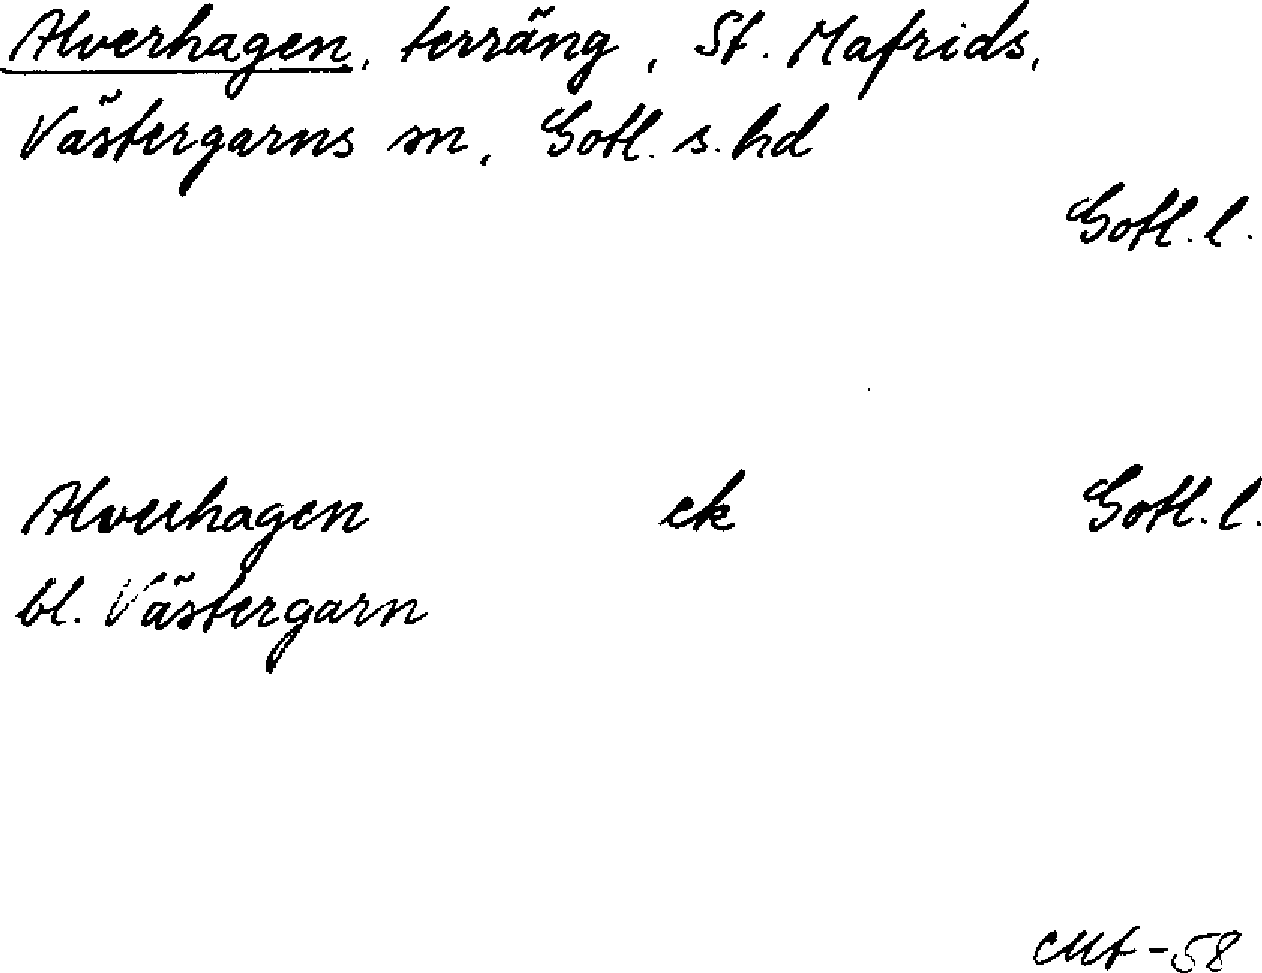 Alverhagen, terräng, St. Mafrids,
Västergarns sn, Gotl. s. hd
Gotl. l.
Alverhagen ek Gotl. l.
bl. Västergarn
CMt-58